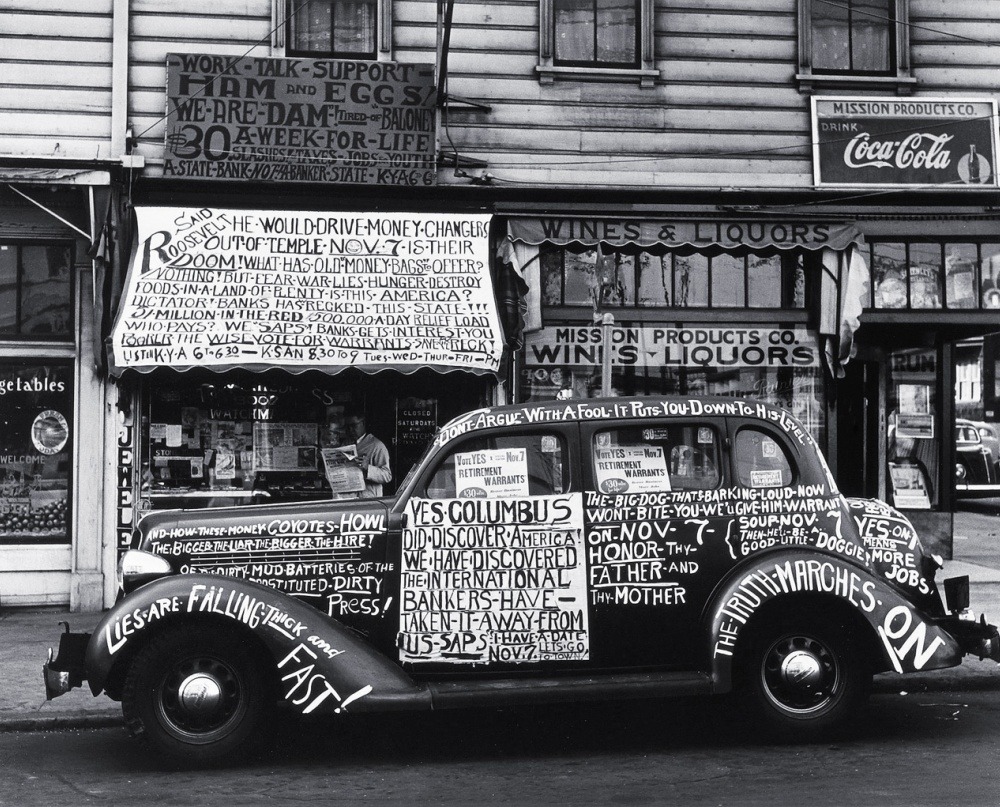 -WORK-TALK-SUPPORT-
HAM AND EGGS!
WE-ARE-DAM-TIRED-OF-BALONEY
$30 A-WEEK-FOR-LIFE
SLASHES-TAXES-JOBS-YOUTH
A-STATE-BANK-NOT-A-BANKER-STATE-KYA6-6
SAID
ROOSEVELT HE-WOULD-DRIVE-MONEY-CHANGERS
OUT-OF-TEMPLE-NOV-7-IS-THEIR
DOOM! WHAT-HAS-OLD-MONEY-BAGS-TO-OFFER?
NOTHING! BUT-FEAR-WAR-LIES-HUNGER-DESTROY
FOODS-IN-A-LAND-OF-PLENTY-IS-THIS-AMERICA?
DICTATOR-BANKS HAS-
THIS-STATE-!!!
MILLION-IN-THE-RED $500,000-A-DAY RELIEF LOAD
WHO-PAYS? WE-SAPS! BANKS-GET-INTEREST-YOU
THE WISE-VOTE-FOR-WARRANTS-SAVE-
LISTEN-KYA 6 TO 6-30 - KSAN 8.30 TO 9 TUES-WED-THUR-FRI-PM
MISSION PRODUCTS CO.
DRINK
Coca-Cola
WINES & LIQUORS
MISSION PRODUCTS CO.
WINES - LIQUORS
getables
WELCOME
JEWELE
WATCH
CLOSED
SATURDAYS
DONT-ARGUE-WITH-A-FOOL-IT PUTS-YOU-DOWN-TO HIS-LEVEL
VOTE YES Nov. 7
RETIREMENT
WARRANTS
$30
VOTE YES Nov. 7
RETIREMENT
WARRANTS
$30
AND-HOW-THESE-MONEY COYOTES-HOWL
THE-BIGGER-THE-LIAR-THE-BIGGER-THE-HIRE!
DIRTY-MUD-BATTERIES-OF-THE
PROSTITUTED-DIRTY
PRESS!
LIES-ARE-FALLING THICK and
FAST!
YES-COLUMBUS
DID-DISCOVER-AMERICA!
WE-HAVE-DISCOVERED
THE-INTERNATIONAL
BANKERS-HAVE-
TAKEN-IT-AWAY-FROM
US-SAPS! I-HAVE-A-DATE
NOV.7. LETS-GO
TO-TOWN!
THE-BIG-DOG-THAT'S-BARKING-LOUD-NOW
WONT-BITE-YOU-WE'LL GIVE-HIM-WARRANT
SOUP-NOV-7
THEN-HE'LL-BE-A
GOOD-LITTLE-DOGGIE
ON-NOV-7-
HONOR-THY-
FATHER-AND
THY-MOTHER
YES-ON-7
MEANS
MORE
JOBS
THE-TRUTH-MARCHES-ON